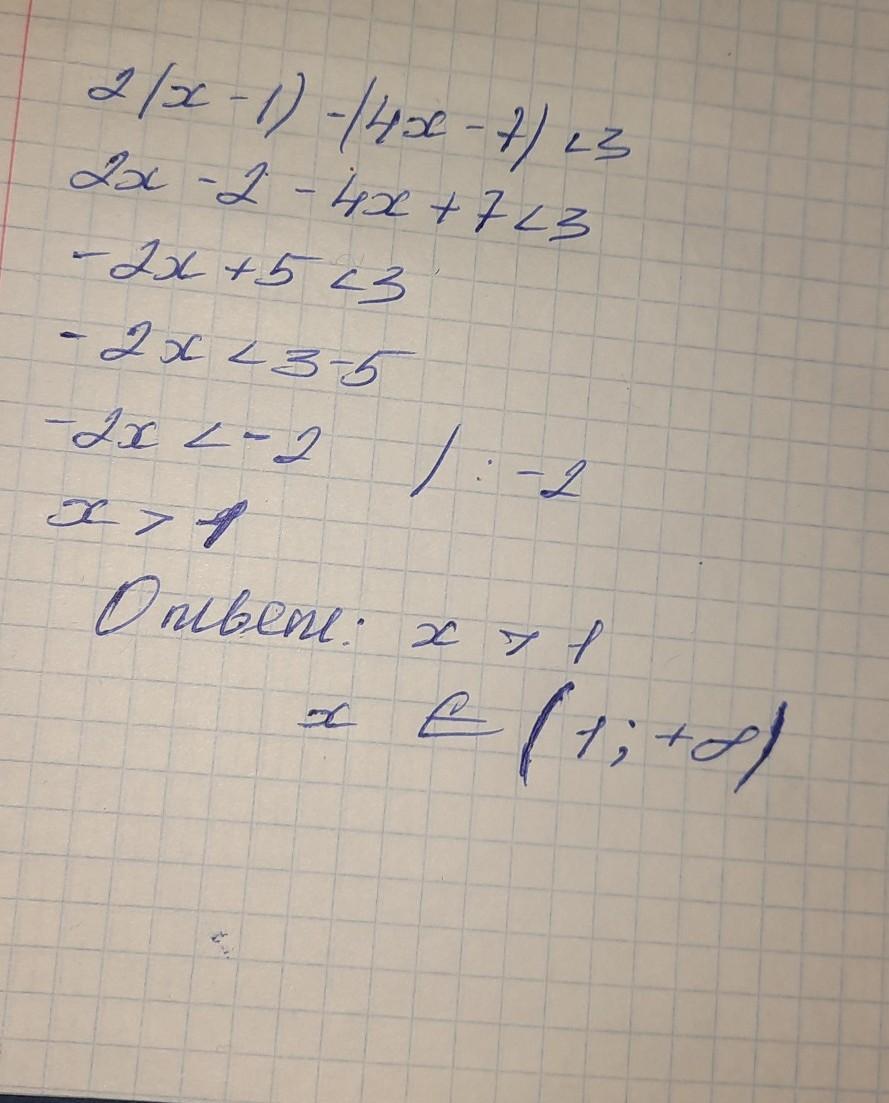 2(x - 1) - (4x - 7) < 3
2x - 2 - 4x + 7 < 3
- 2x + 5 < 3
- 2x < 3 - 5
- 2x < - 2 / : - 2
x > 1
Ответ: x > 1
x ∈ (1; + ∞)